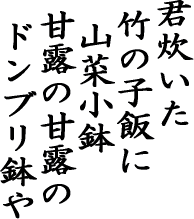 君炊いた
竹の子飯に
山菜小鉢
甘露の甘露の
ドンブリ鉢や